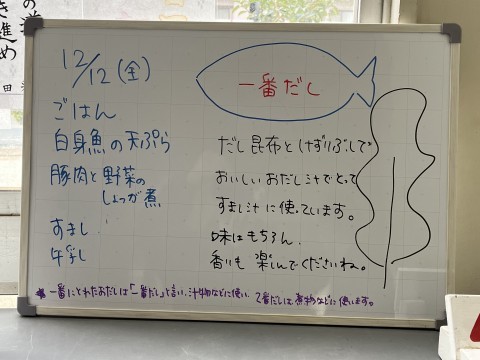 き進め
田
12/12(金)
ごはん
白身魚の天ぷら
豚肉と野菜の
しょうが煮
すまし
牛乳
一番だし
だし昆布とけずりぶしで
おいしいおだし汁でとって
すまし汁に使っています。
味はもちろん、
香りも楽しんでくださいね。
一番にとれたおだしは「一番だし」と言い、汁物などに使い、2番だしは煮物などに使います。